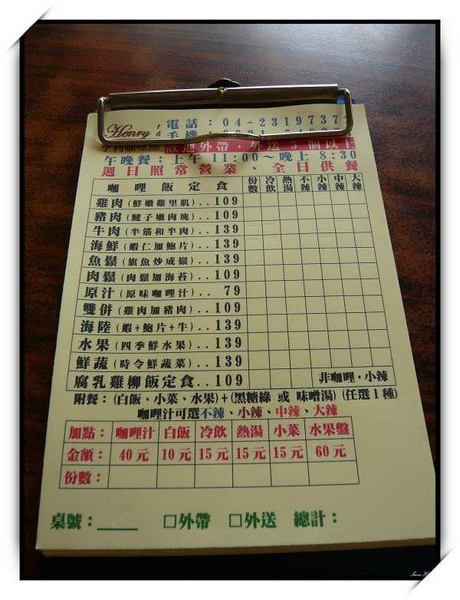 Henry's 電話：04-2319737
手機
歡迎外帶‧外送
午晚餐：上午 11:00～晚上 8:30
週日照常營業、全日供餐
咖哩飯定食 份數 冷飲 熱湯 不辣 小辣 中辣 大辣
雞肉(鮮嫩雞里肌)..109
豬肉(腱子嫩肉塊)..109
牛肉(半筋和半肉)..139
海鮮(蝦仁加鮑片)..139
魚鬆(旗魚炒成鬆)..139
肉鬆(肉鬆加海苔)..109
原汁(原味咖哩汁).. 79
雙併(雞肉加豬肉)..109
海陸(蝦+鮑片+牛)..139
水果(四季鮮水果)..139
鮮蔬(時令鮮蔬菜)..139
腐乳雞柳飯定食..109 非咖哩‧小辣
附餐：(白飯、小菜、水果)+(黑糖綠 或 味噌湯) (任選1種)
咖哩汁可選不辣、小辣、中辣、大辣
加點： 咖哩汁 白飯 冷飲 熱湯 小菜 水果盤
金額： 40元 10元 15元 15元 15元 60元
份數：
桌號：____ □外帶 □外送 總計：